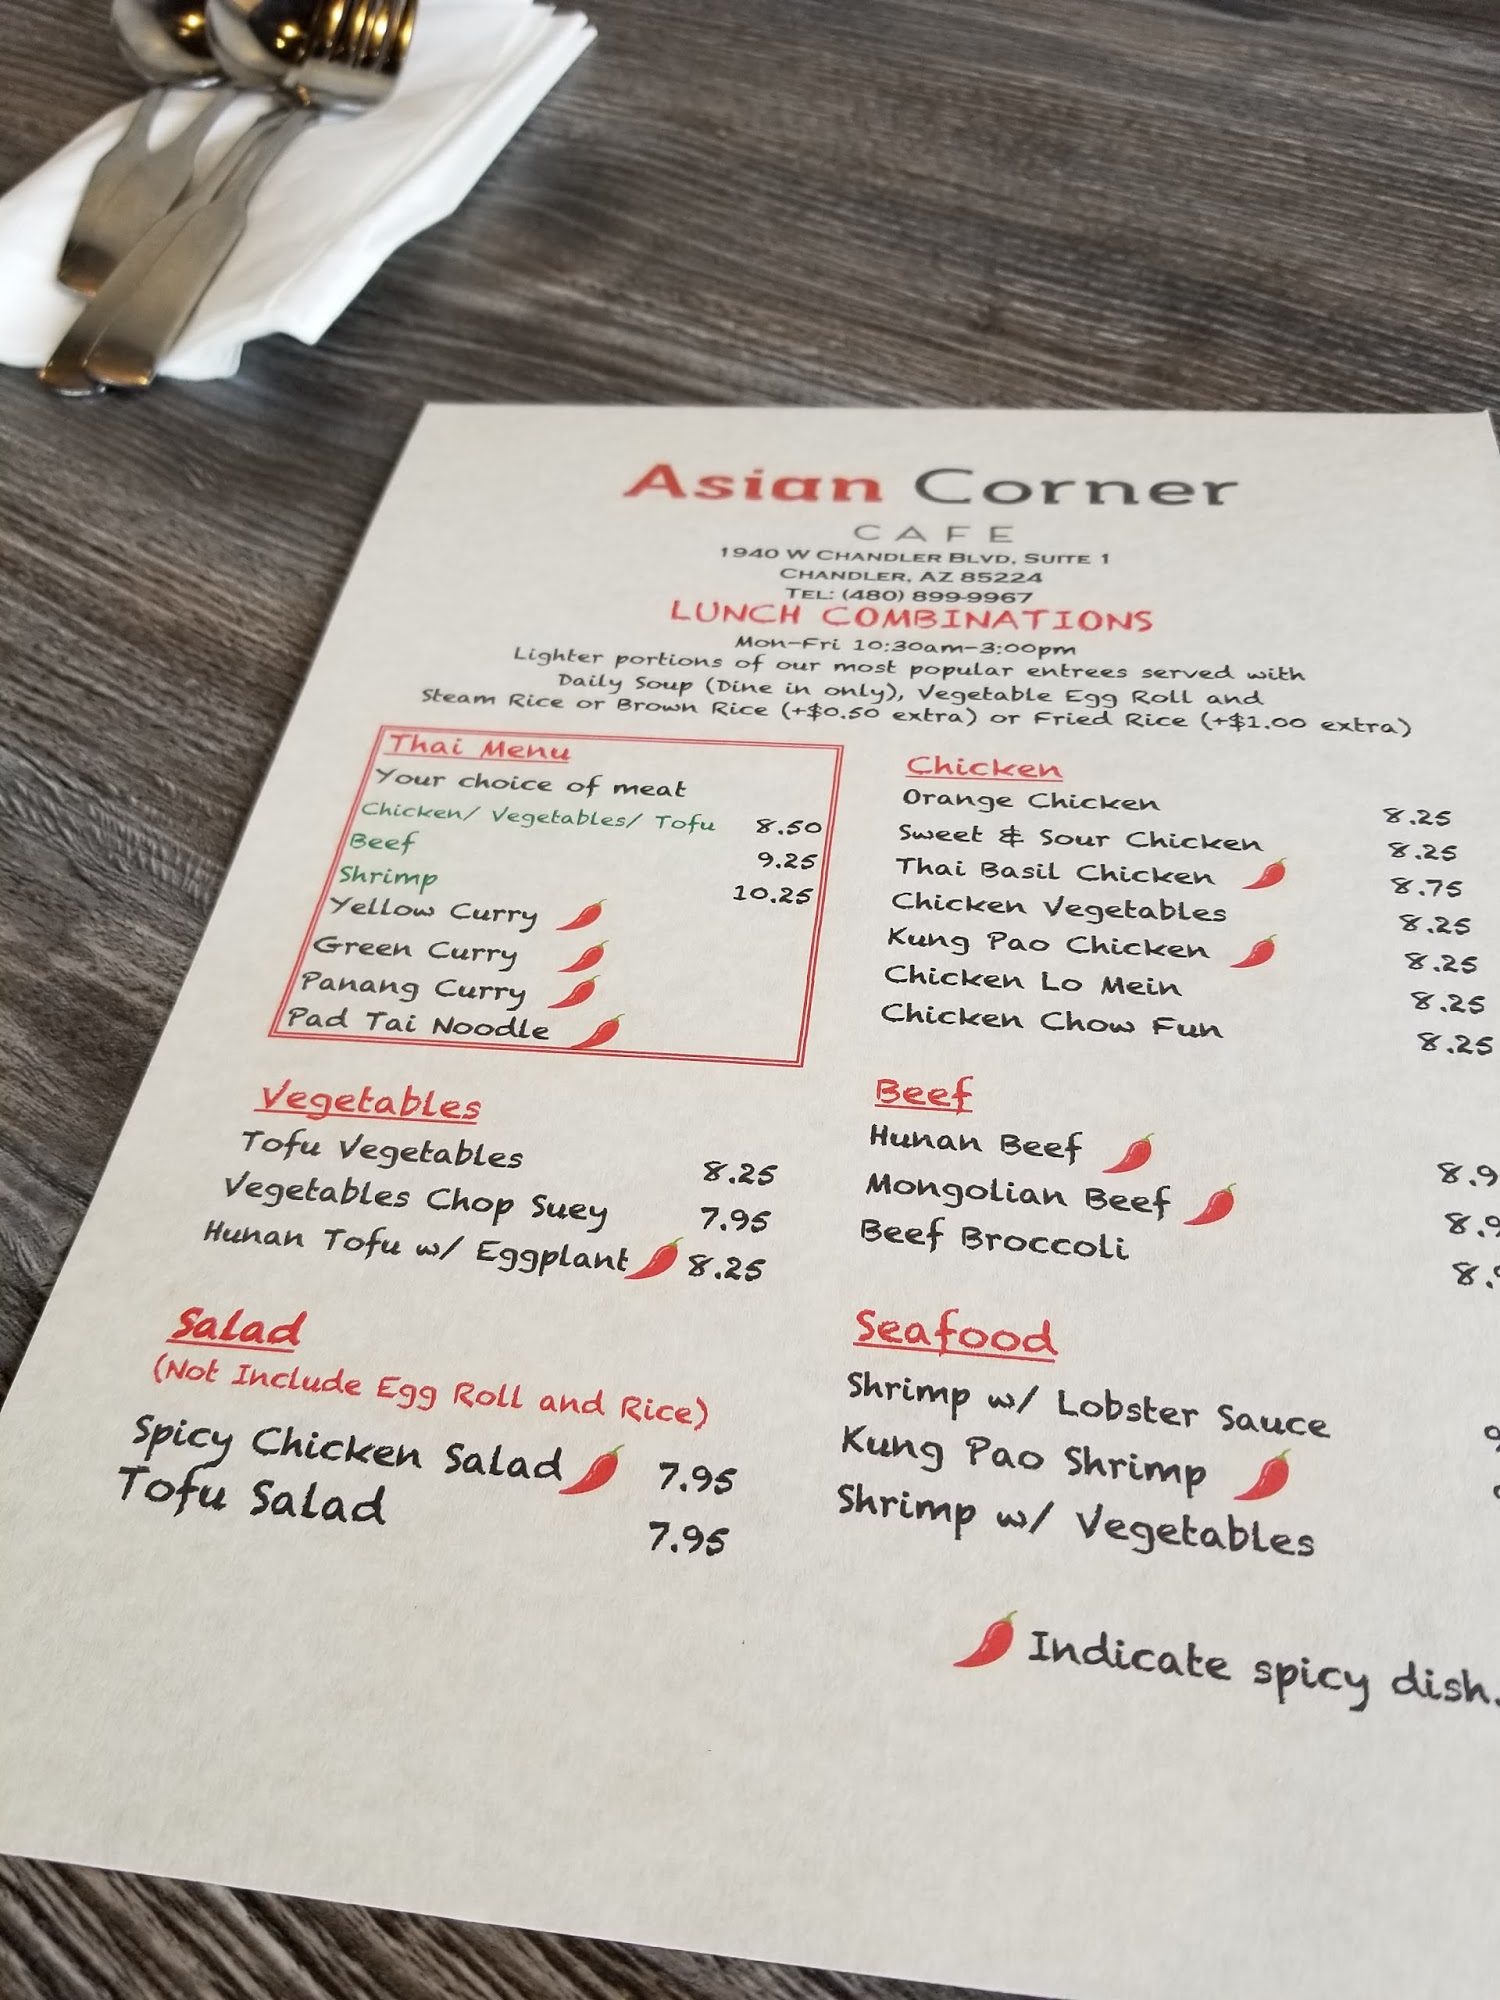 Asian Corner
CAFE
1940 W CHANDLER BLVD, SUITE 1
CHANDLER, AZ 85224
TEL: (480) 899-9967
LUNCH COMBINATIONS
Mon-Fri 10:30am-3:00pm
Lighter portions of our most popular entrees served with
Daily Soup (Dine in only), Vegetable Egg Roll and
Steam Rice or Brown Rice (+$0.50 extra) or Fried Rice (+$1.00 extra)
Thai Menu
Your choice of meat
Chicken/ Vegetables/ Tofu 8.50
Beef 9.25
Shrimp 10.25
Yellow Curry
Green Curry
Panang Curry
Pad Tai Noodle
Vegetables
Tofu Vegetables 8.25
Vegetables Chop Suey 7.95
Hunan Tofu w/ Eggplant 8.25
Salad
(Not Include Egg Roll and Rice)
Spicy Chicken Salad 7.95
Tofu Salad 7.95
Chicken
Orange Chicken 8.25
Sweet & Sour Chicken 8.25
Thai Basil Chicken 8.75
Chicken Vegetables 8.25
Kung Pao Chicken 8.25
Chicken Lo Mein 8.25
Chicken Chow Fun 8.25
Beef
Hunan Beef 8.9
Mongolian Beef 8.9
Beef Broccoli
Seafood
Shrimp w/ Lobster Sauce
Kung Pao Shrimp
Shrimp w/ Vegetables
Indicate spicy dish.